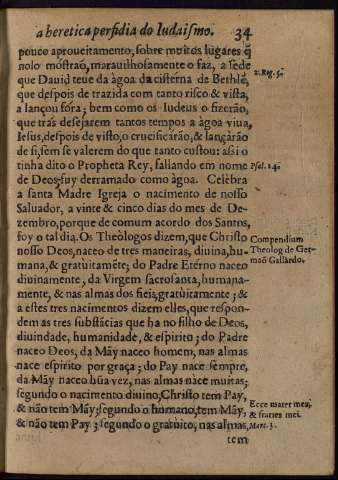 a heretica perfidia do Iudaismo. 34
pouco aproueitamento, sobre muitos lugares q̃
nolo mostrão, marauilhosamente o faz, a sede
que Dauid teue da àgoa da cisterna de Bethlẽ,
2. Reg. 5.
que despois de trazida com tanto risco & vista,
a lançou fóra; bem como os Iudeus o fizerão,
que tràs desejarem tantos tempos a àgoa viua,
Iesus, despois de visto, o crucificàrão, & lançàrão
de si, sem se valerem do que tanto custou: assi o
tinha dito o Propheta Rey, fallando em nome
Psal. 14.
de Deos, fuy derramado como àgoa. Celèbra
a santa Madre Igreja o nacimento de nosso
Saluador, a vinte & cinco dias do mes de De-
zembro, porque de comum acordo dos Santos,
foy o tal dia. Os Theòlogos dizem, que Christo
nosso Deos, naceo de tres maneiras, diuina, hu-
Compendium
Theolog. de Ger-
maõ Gallardo.
mana, & gratuitamẽte; do Padre Eterno naceo
diuinamente, da Virgem sacrosanta, humana-
mente, & nas almas dos fieis, gratuitamente; &
a estes tres nacimentos dizem elles, que respon-
dem as tres substãcias que ha no filho de Deos,
diuindade, humanidade, & espirito; do Padre
naceo Deos, da Mãy naceo homem, nas almas
nace espirito por graça; do Pay nace sempre,
da Mãy naceo hũa vez, nas almas nace muitas;
segundo o nacimento diuino, Christo tem Pay,
& não tem Mãy; segundo o humano, tem Mãy,
Ecce mater mea,
& fratres mei.
Marc. 3.
& não tem Pay; segundo o gratuito, nas almas,
tem